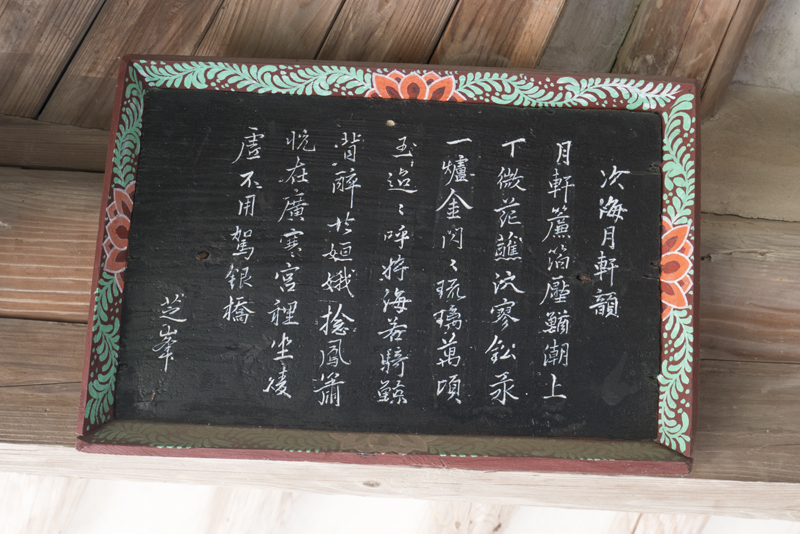 次海月軒韻
月軒簾箔壓鰌潮上
下微茫蘸泬寥鈆汞
一爐金閃〻琉璃萬頃
玉迢〻呼將海若騎鯨
背醉扵姮娥捻鳳簫
恍在廣寒宮裡坐凌
虛不用駕銀橋
芝峯